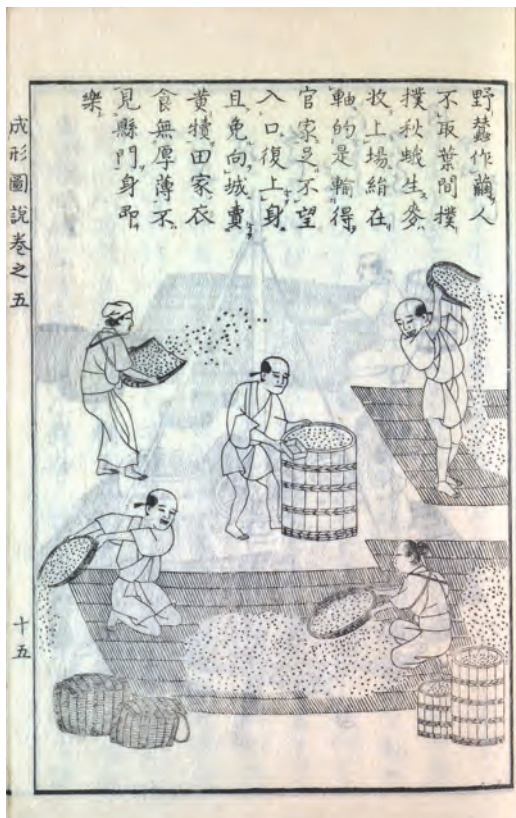 野蠶作繭人
不取葉間撲
撲秋蛾生麥
收上場絹在
軸的是輸得
官家足不望
入口復上身
且免向城賣
黃犢田家衣
食無厚薄不
見縣門身即
樂
成形圖說卷之五
十五